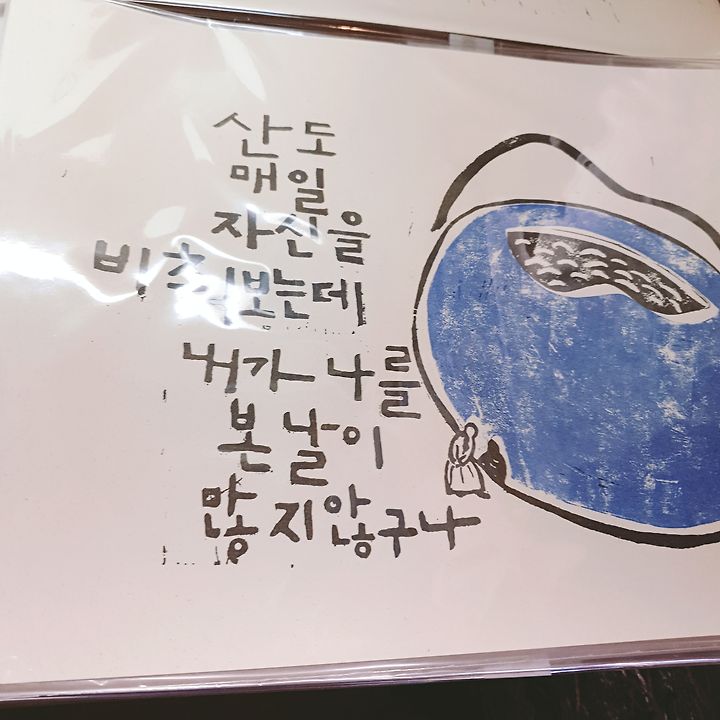 산도
매일
자신을
비춰보는데
내가 나를
본 날이
많지않구나